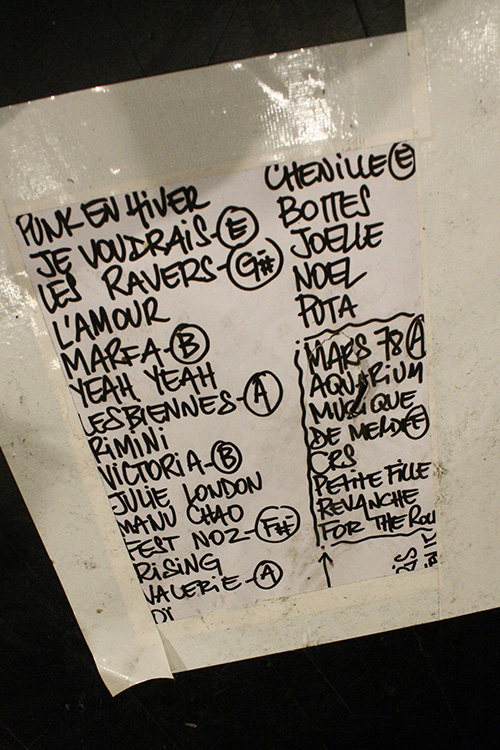 PUNK EN HIVER
JE VOUDRAIS-E
LES RAVERS-G#
L'AMOUR
MARFA-B
YEAH YEAH
LESBIENNES-A
RIMINI
VICTORIA-B
JULIE LONDON
MANU CHAO
FEST NOZ-F#
RISING
VALERIE-A
CHENILLE E
BOTTES
JOELLE
NOEL
PUTA
MARS 78 A
AQUARIUM
MUSIQUE
DE MERDE E
CRS
PETITE FILLE
REVANCHE
FOR THE ROU